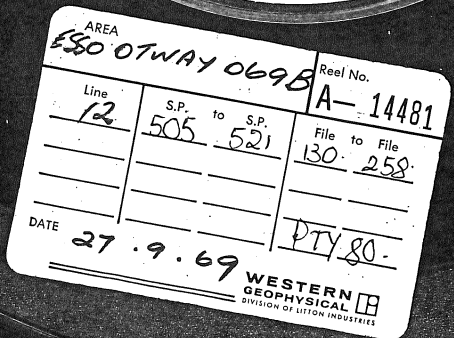 AREA
ESSO OTWAY O69B
Reel No.
A- 14481
Line
12
S.P. to S.P.
505 521
File to File
130. 258.
PTY 80.
DATE
27.9.69
WESTERN
GEOPHYSICAL
DIVISION OF LITTON INDUSTRIES